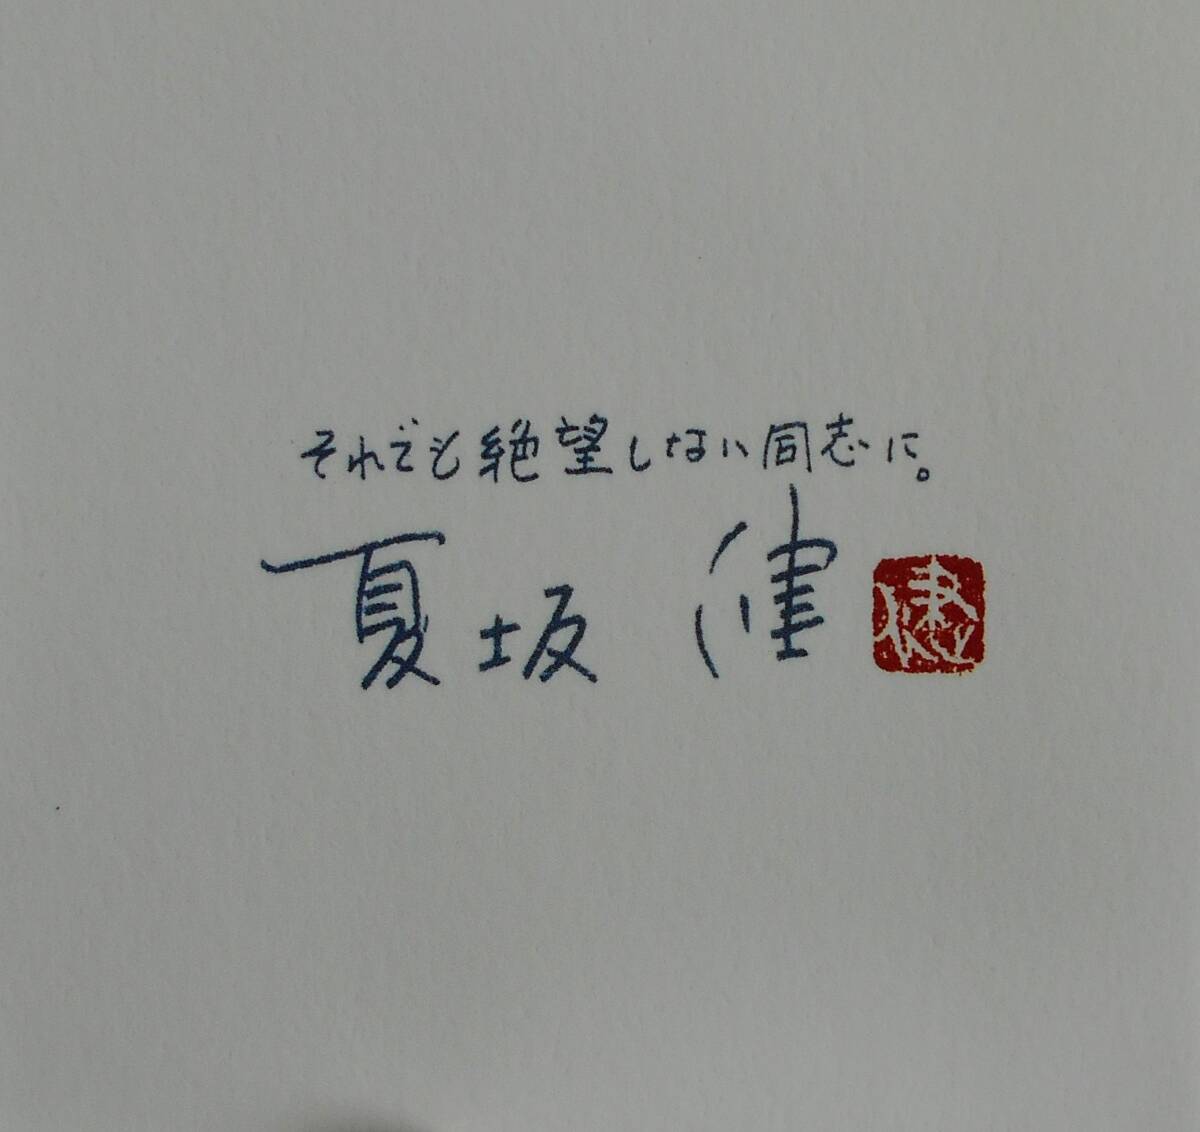 それでも絶望しない同志に。
夏坂 健
健